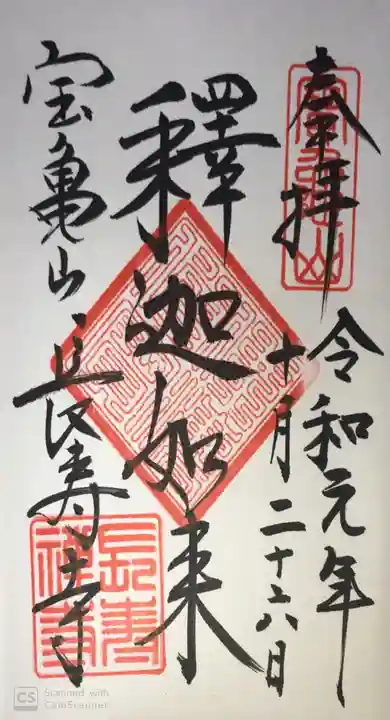 奉拝
令和元年
十月二十六日
釋迦如来
宝亀山 長寿寺
CS Scanned with
CamScanner